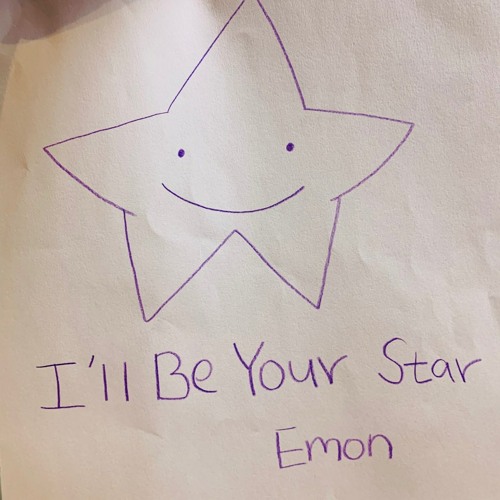 I'll Be Your Star
Emon